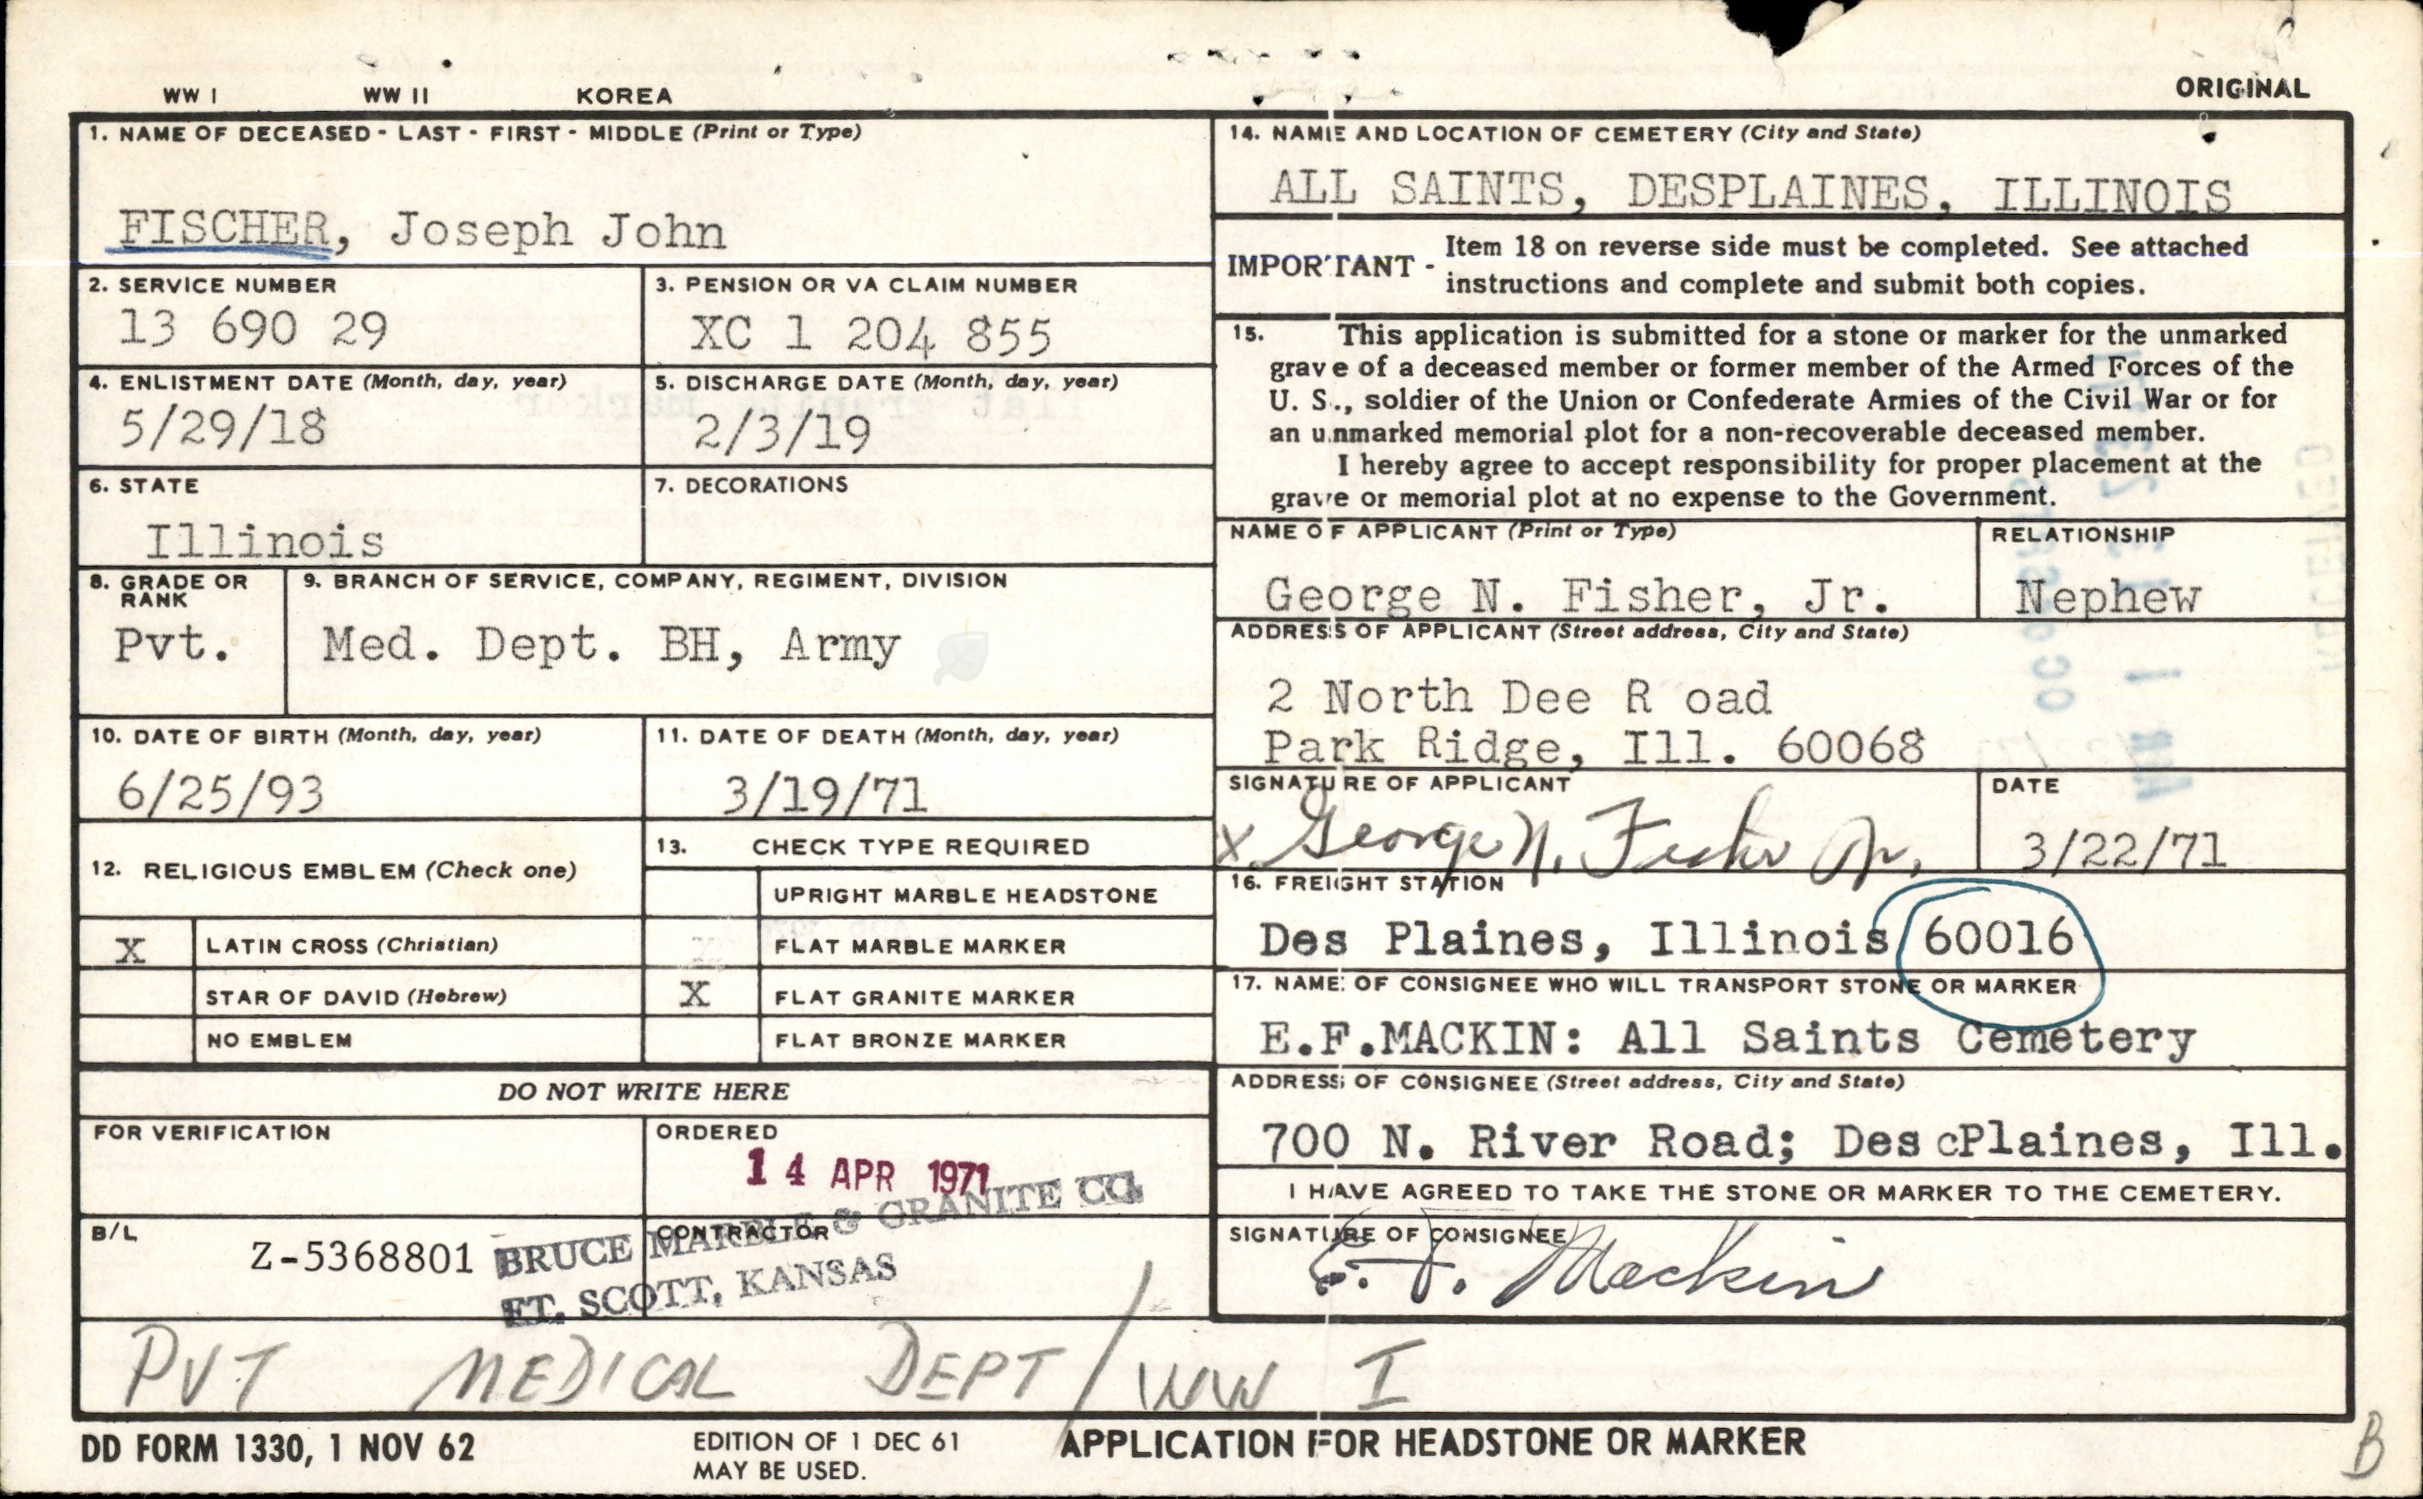 WW I WW II KOREA ORIGINAL
1. NAME OF DECEASED - LAST - FIRST - MIDDLE (Print or Type)
FISCHER, Joseph John
2. SERVICE NUMBER
13 690 29
3. PENSION OR VA CLAIM NUMBER
XC 1 204 855
4. ENLISTMENT DATE (Month, day, year)
5/29/18
5. DISCHARGE DATE (Month, day, year)
2/3/19
6. STATE
Illinois
7. DECORATIONS
8. GRADE OR
RANK
Pvt.
9. BRANCH OF SERVICE, COMPANY, REGIMENT, DIVISION
Med. Dept. BH, Army
10. DATE OF BIRTH (Month, day, year)
6/25/93
11. DATE OF DEATH (Month, day, year)
3/19/71
12. RELIGIOUS EMBLEM (Check one)
X LATIN CROSS (Christian)
STAR OF DAVID (Hebrew)
NO EMBLEM
13. CHECK TYPE REQUIRED
UPRIGHT MARBLE HEADSTONE
FLAT MARBLE MARKER
X FLAT GRANITE MARKER
FLAT BRONZE MARKER
DO NOT WRITE HERE
FOR VERIFICATION
ORDERED
14 APR 1971
B/L
Z-5368801
CONTRACTOR
BRUCE MARBLE & GRANITE CO.
FT. SCOTT, KANSAS
14. NAME AND LOCATION OF CEMETERY (City and State)
ALL SAINTS, DESPLAINES, ILLINOIS
IMPORTANT - Item 18 on reverse side must be completed. See attached
instructions and complete and submit both copies.
15. This application is submitted for a stone or marker for the unmarked
grave of a deceased member or former member of the Armed Forces of the
U. S., soldier of the Union or Confederate Armies of the Civil War or for
an unmarked memorial plot for a non-recoverable deceased member.
I hereby agree to accept responsibility for proper placement at the
grave or memorial plot at no expense to the Government.
NAME OF APPLICANT (Print or Type)
George N. Fisher, Jr.
RELATIONSHIP
Nephew
ADDRESS OF APPLICANT (Street address, City and State)
2 North Dee R oad
Park Ridge, Ill. 60068
SIGNATURE OF APPLICANT
X George N. Fisher Jr.
DATE
3/22/71
16. FREIGHT STATION
Des Plaines, Illinois 60016
17. NAME OF CONSIGNEE WHO WILL TRANSPORT STONE OR MARKER
E.F.MACKIN: All Saints Cemetery
ADDRESS OF CONSIGNEE (Street address, City and State)
700 N. River Road; Des cPlaines, Ill.
I HAVE AGREED TO TAKE THE STONE OR MARKER TO THE CEMETERY.
SIGNATURE OF CONSIGNEE
E. F. Mackin
PVT MEDICAL DEPT/WW I
DD FORM 1330, 1 NOV 62
EDITION OF 1 DEC 61
MAY BE USED.
APPLICATION FOR HEADSTONE OR MARKER
B